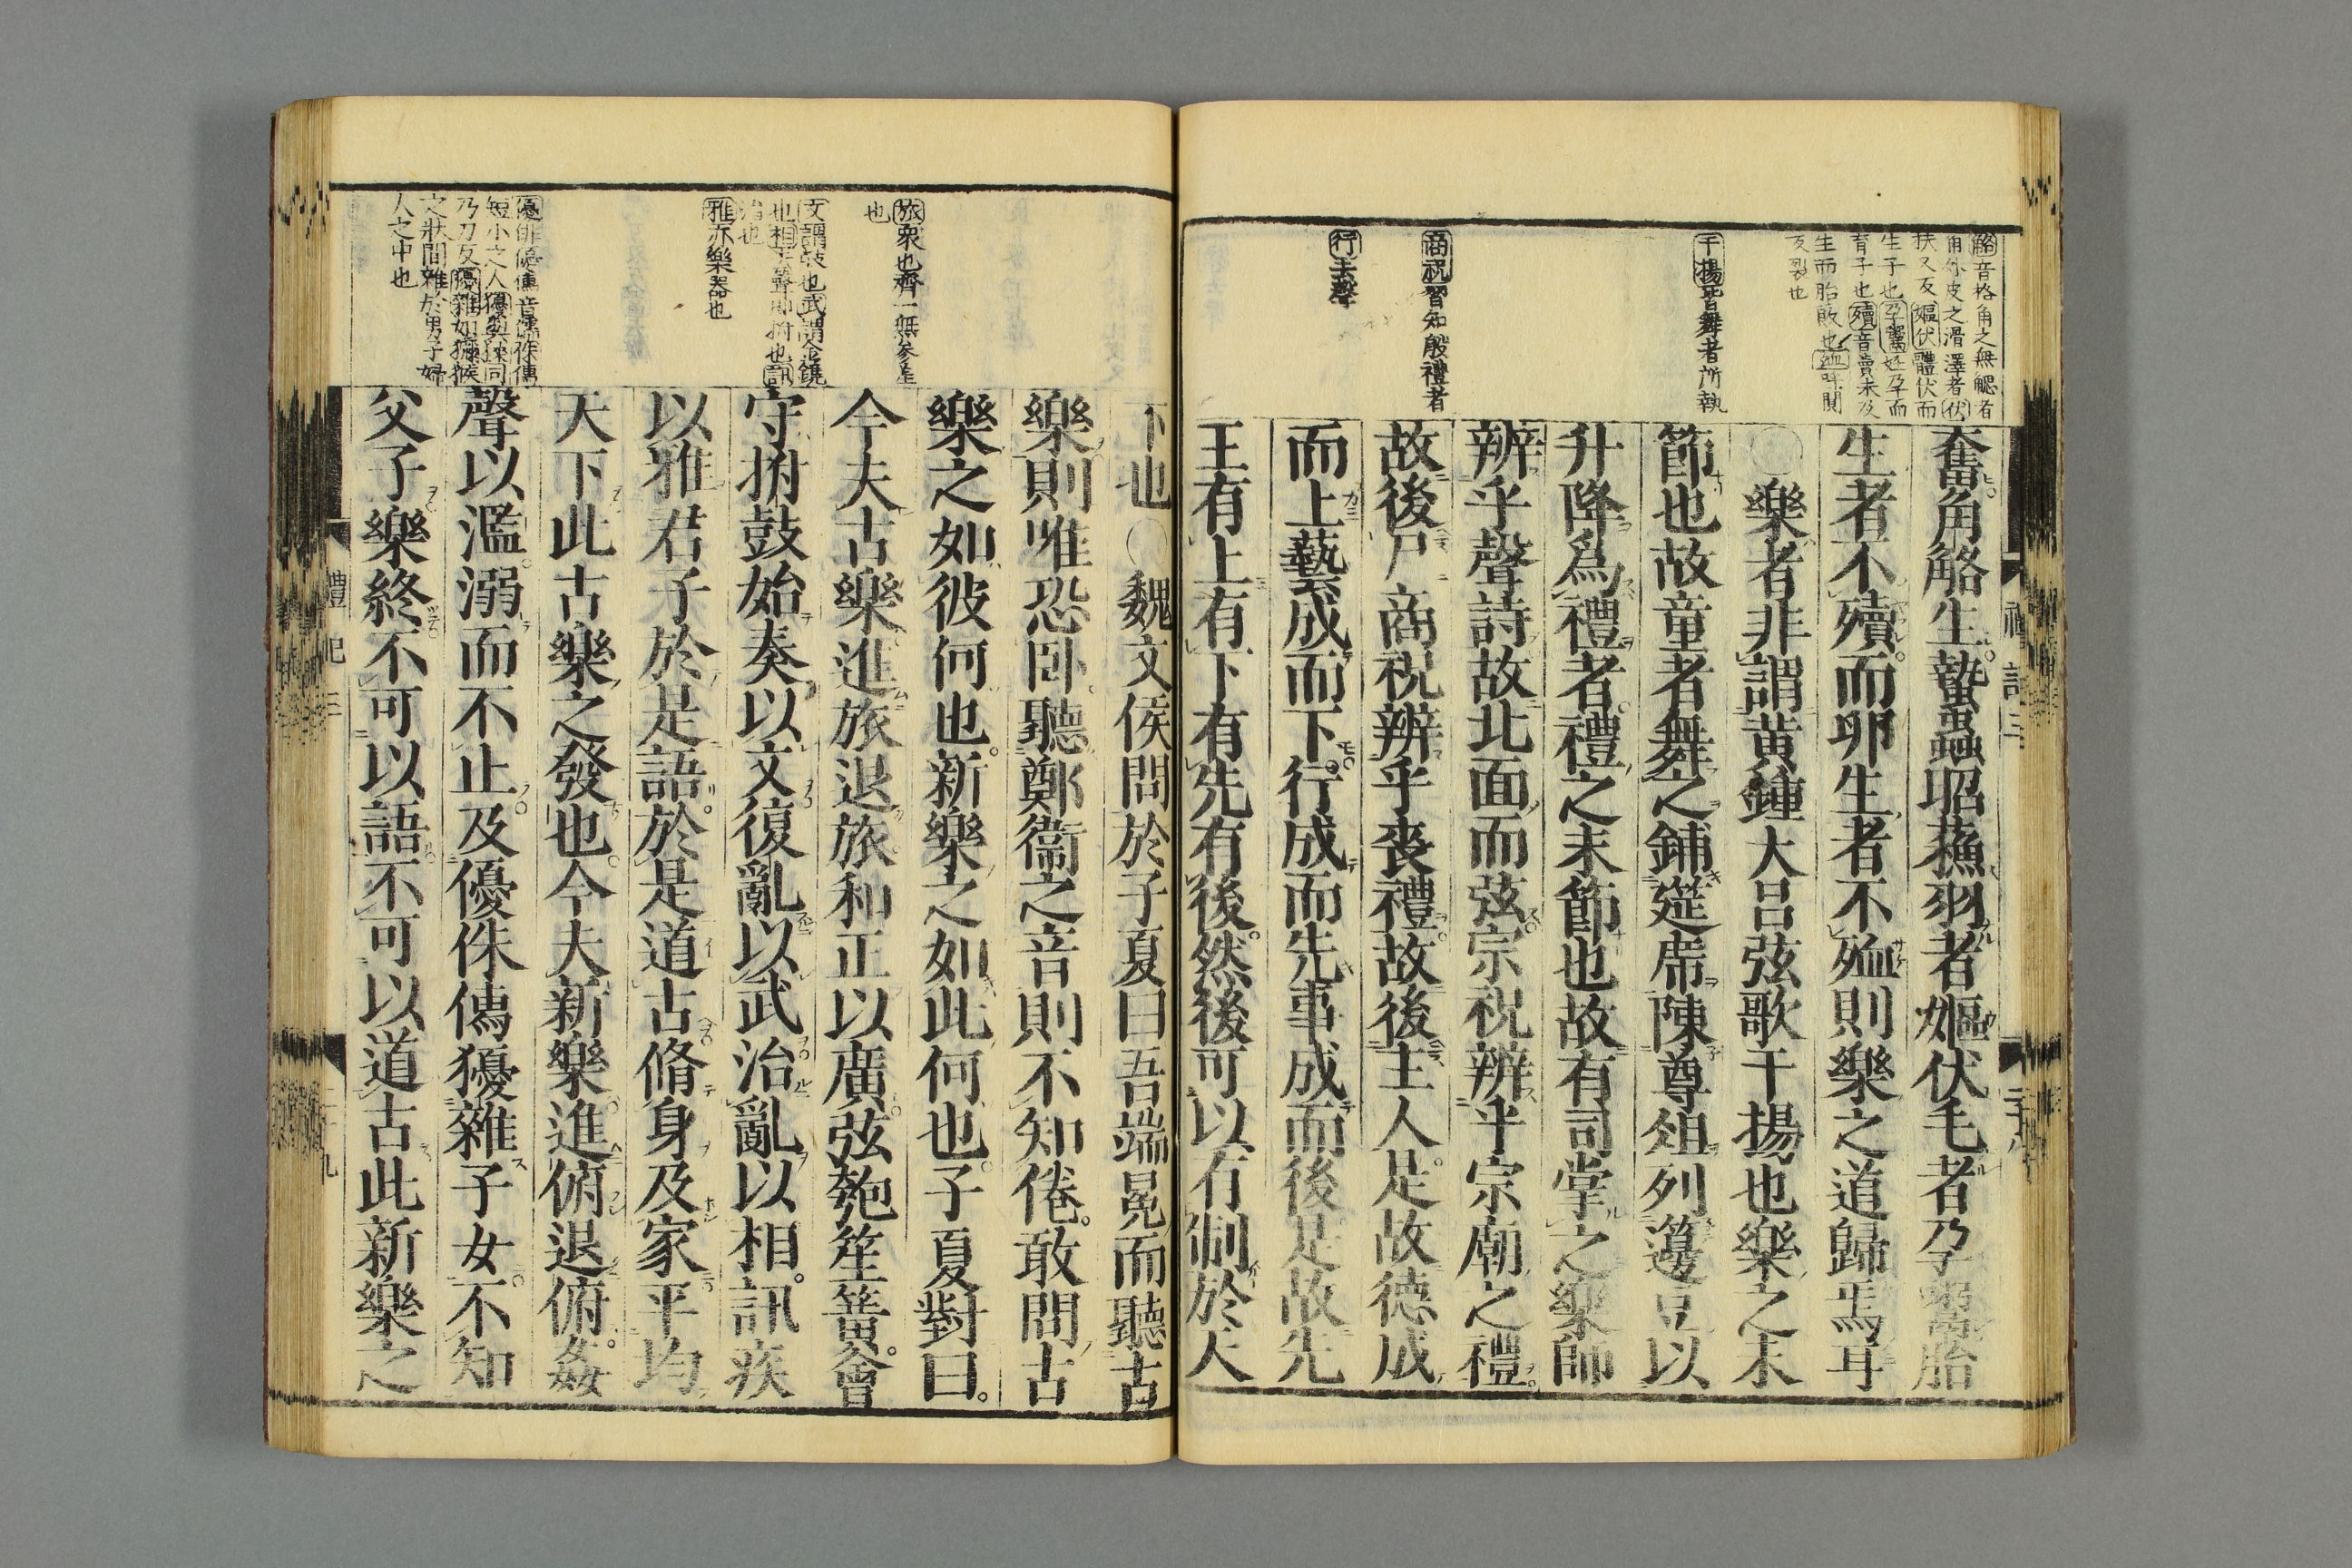 觡音格角之無䚡者
角外皮之滑澤者伏
扶又反嫗伏體伏而
生子也孕鬻妊孕而
育子也殰音賣未及
生而胎敗也殈呼闃
反裂也
干揚皆舞者所執
商祝習知殷禮者
行去聲
奮角觡生蟄蟲昭蘓羽者嫗伏毛者孕鬻胎
生者不殰而卵生者不殈則樂之道歸焉耳
○樂者非謂黃鍾大呂弦歌干揚也樂之末
節也故童者舞之鋪筵席陳尊俎列籩豆以
升降爲禮者禮之末節也故有司掌之樂師
辨乎聲詩故北面而弦宗祝辨乎宗廟之禮
故後尸商祝辨乎喪禮故後主人是故德成
而上藝成而下行成而先事成而後是故先
王有上有下有先有後然後可以有制於天
禮記三
二十八
旅衆也齊一無參差
也
文謂鼓也武謂金鐃
也相
治也
雅亦樂器也
優俳優侏音儒侏儒
短小之人獶與猱同
乃刀反獶雜如獼猴
之狀間雜於男子婦
人之中也
下也○魏文侯問於子夏曰吾端冕而聽古
樂則唯恐卧聽鄭衞之音則不知倦敢問古
樂之如彼何也新樂之如此何也子夏對曰
今夫古樂進旅退旅和正以廣弦匏笙簧會
守拊鼓始奏以文復亂以武治亂以相訊疾
以雅君子於是語於是道古脩身及家平均
天下此古樂之發也今夫新樂進俯退俯姦
聲以濫溺而不止及優侏儒獶雜子女不知
父子樂終不可以語不可以道古此新樂之
禮記三